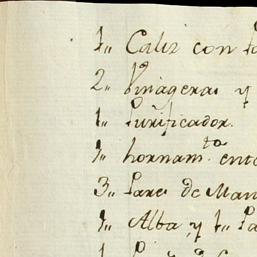 1,, Caliz con
2,, Vinageras y
1,, Purificador.
1,, hornam.to ente
3,, Pares de Man
1,, Alba, y 1,,
1,,